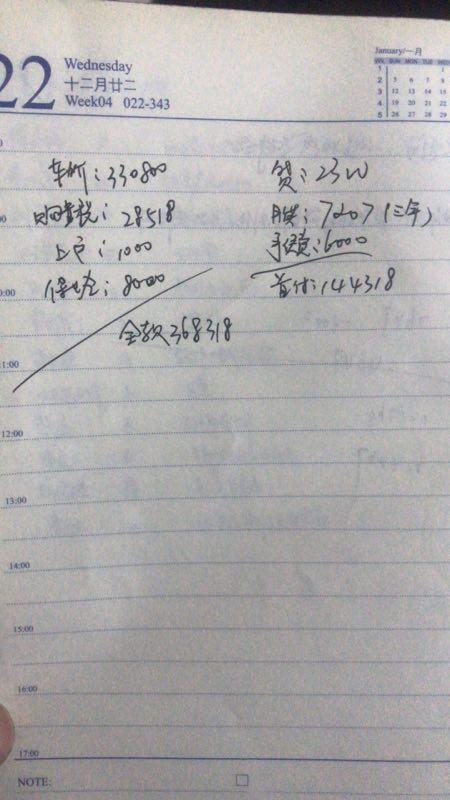 22
Wednesday
十二月廿二
Week04 022-343
January/一月
WK SUN MON TUE WED
1 1
2 5 6 7 8
3 12 13 14 15
4 19 20 21 22
5 26 27 28 29
车价：330800
购置税：28518
上户：1000
保险：8000
全款368318
贷：23W
月供：7207(三年)
手续费：6000
首付：144318
11:00
12:00
13:00
14:00
15:00
16:00
17:00
NOTE: